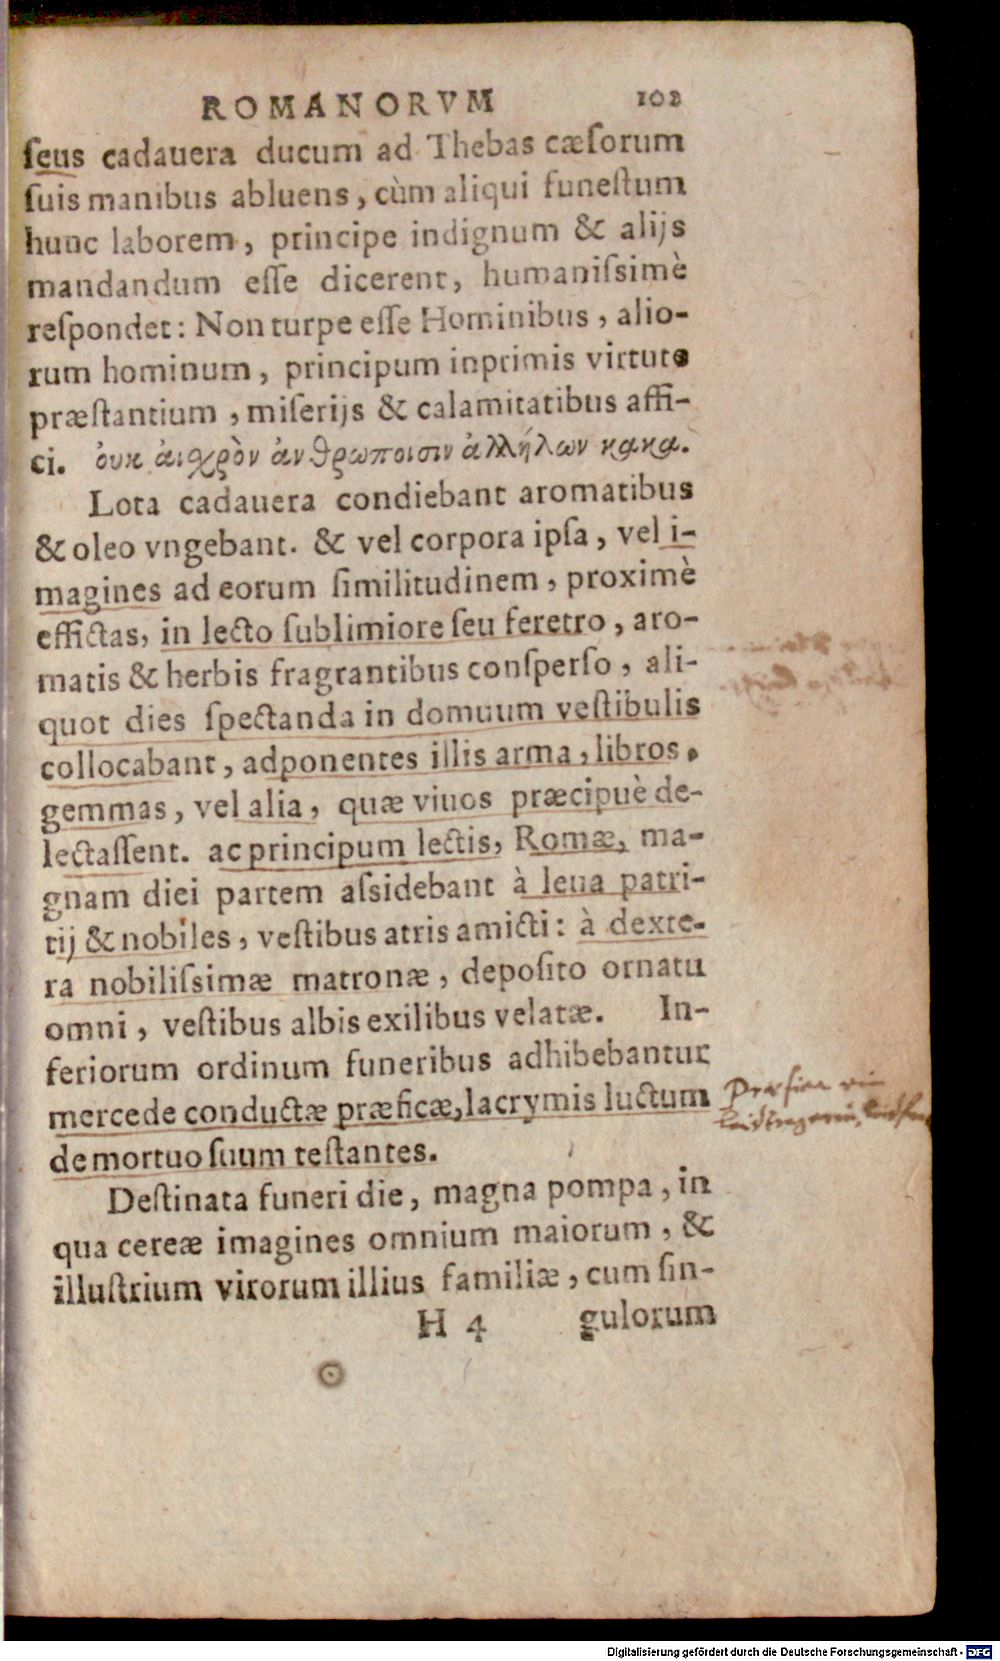 ROMANORVM 102
ſeus cadauera ducum ad Thebas cæſorum
ſuis manibus abluens, cùm aliqui funeſtum
hunc laborem, principe indignum & alijs
mandandum eſſe dicerent, humaniſsimè
reſpondet: Non turpe eſſe Hominibus, alio-
rum hominum, principum inprimis virtute
præſtantium, miſerijs & calamitatibus affi-
ci. ὀυκ ἀιχρὸν ἀνθρωποισιν ἀλλήλων κακα.
Lota cadauera condiebant aromatibus
& oleo vngebant. & vel corpora ipſa, vel i-
magines ad eorum ſimilitudinem, proximè
effictas, in lecto ſublimiore ſeu feretro, aro-
matis & herbis fragrantibus conſperſo, ali-
quot dies ſpectanda in domuum veſtibulis
collocabant, adponentes illis arma, libros,
gemmas, vel alia, quæ viuos præcipuè de-
lectaſſent. ac principum lectis, Romæ, ma-
gnam diei partem aſsidebant à leua patri-
tij & nobiles, veſtibus atris amicti: à dexte-
ra nobiliſsimæ matronæ, depoſito ornatu
omni, veſtibus albis exilibus velatæ. In-
feriorum ordinum funeribus adhibebantur
mercede conductæ præficæ, lacrymis luctum
de mortuo ſuum teſtantes.
Præficæ ein
Deſtinata funeri die, magna pompa, in
qua cereæ imagines omnium maiorum, &
illuſtrium virorum illius familiæ, cum ſin-
H 4 gulorum
Digitalisierung gefördert durch die Deutsche Forschungsgemeinschaft - DFG